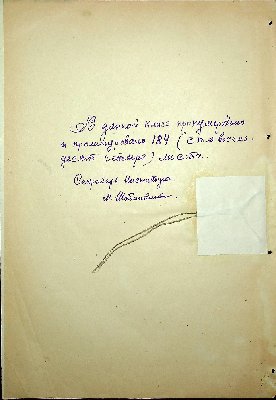 В данной книге пронумеровано
и прошнуровано 184 (сто восем
десят четыре) листа.
Секретарь